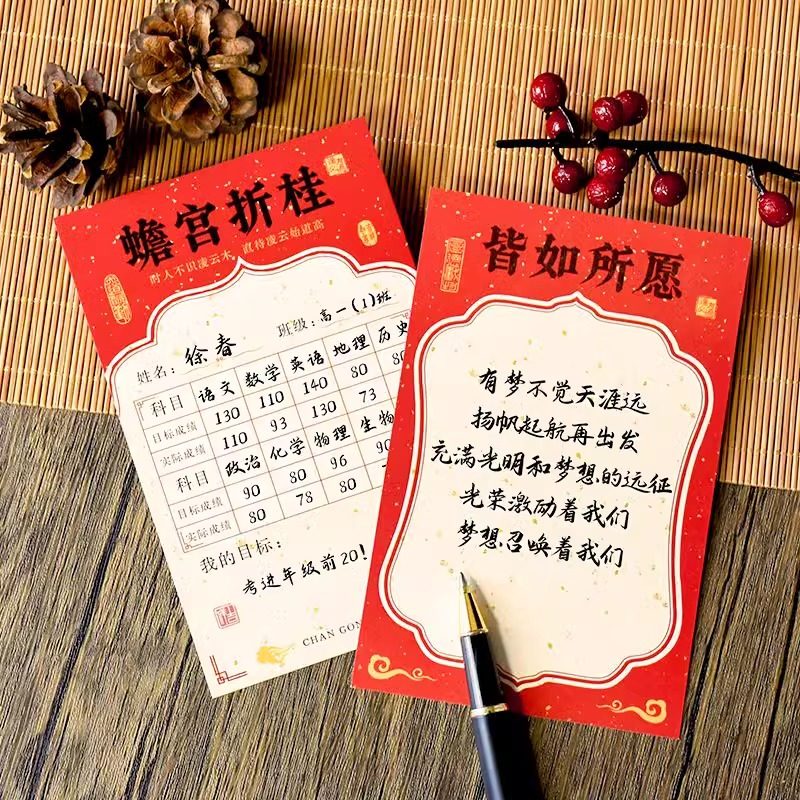 蟾宫折桂
时人不识凌云木 直待凌云始道高
姓名：徐春 班级：高一(1)班
科目 语文 数学 英语 地理 历史
目标成绩 130 110 140 80 80
实际成绩 110 93 130 73
科目 政治 化学 物理 生物
目标成绩 90 80 96 90
实际成绩 80 78 80
我的目标：
考进年级前20！
CHAN GON
皆如所愿
有梦不觉天涯远
扬帆起航再出发
充满光明和梦想的远征
光荣激励着我们
梦想召唤着我们